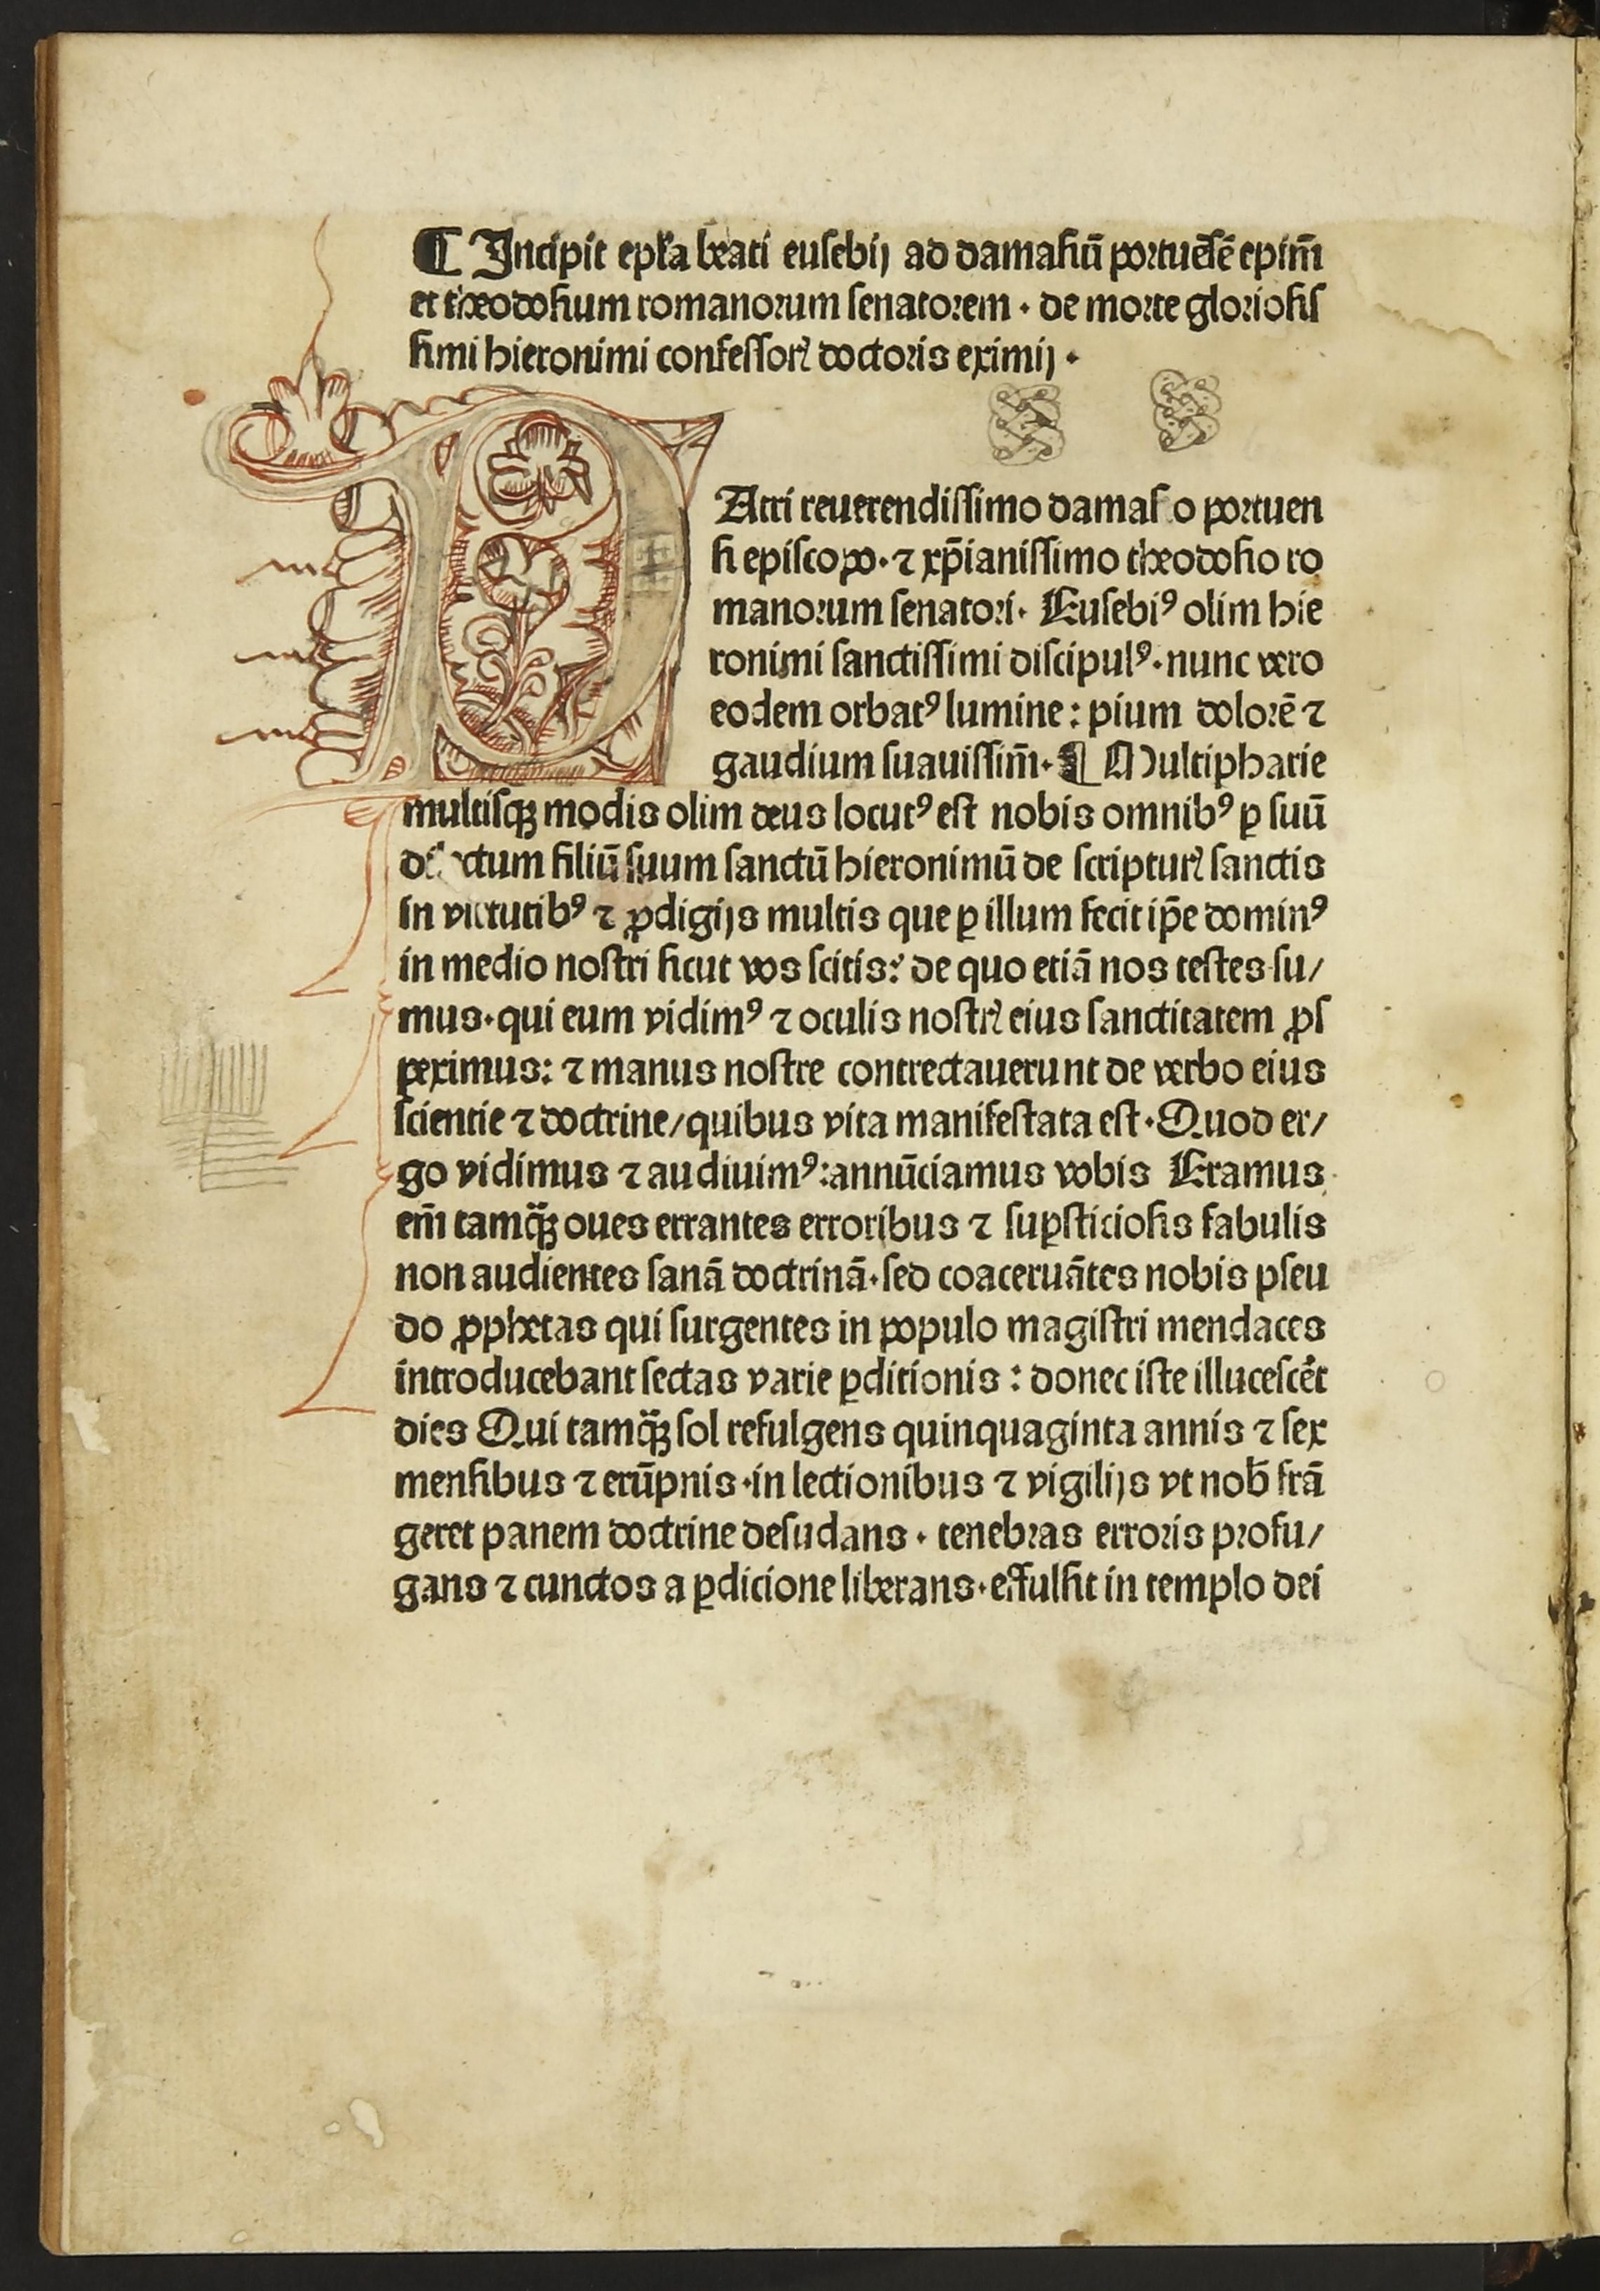 ¶ Incipit epl̄a beati eusebij ad damasiū portuēsē epim̄
et theodosium romanorum senatorem · de morte gloriosis
simi hieronimi confessorꝭ doctoris eximij ·
PAtri reuerendissimo damaso portuen
si episcopo · ⁊ xp̄ianissimo theodosio ro
manorum senatori · Eusebiꝰ olim hie
ronimi sanctissimi discipulꝰ · nunc vero
eodem orbatꝰ lumine : pium dolorē ⁊
gaudium suauissim̄ · ¶ Multipharie
multisqꝫ modis olim deus locutꝰ est nobis omnibꝰ ꝑ suū
dilectum filiū suum sanctū hieronimū de scripturꝭ sanctis
in virtutibꝰ ⁊ ꝓdigijs multis que ꝑ illum fecit ip̄e dominꝰ
in medio nostri sicut vos scitis : de quo etiā nos testes su/
mus · qui eum vidimꝰ ⁊ oculis nostrꝭ eius sanctitatem ꝓs
peximus : ⁊ manus nostre contrectauerunt de verbo eius
scientie ⁊ doctrine / quibus vita manifestata est · Quod er/
go vidimus ⁊ audiuimꝰ : annūciamus vobis Eramus
em̄ tamq̈ꝫ oues errantes erroribus ⁊ suꝑsticiosis fabulis
non audientes sanā doctrinā · sed coaceruātes nobis pseu
do ꝓphetas qui surgentes in populo magistri mendaces
introducebant sectas varie ꝑditionis : donec iste illucescēt
dies Qui tamq̈ꝫ sol refulgens quinquaginta annis ⁊ sex
mensibus ⁊ erūpnis · in lectionibus ⁊ vigilijs vt nob̄ frā
geret panem doctrine desudans · tenebras erroris profu/
gans ⁊ cunctos a ꝑdicione liberans · effulsit in templo dei